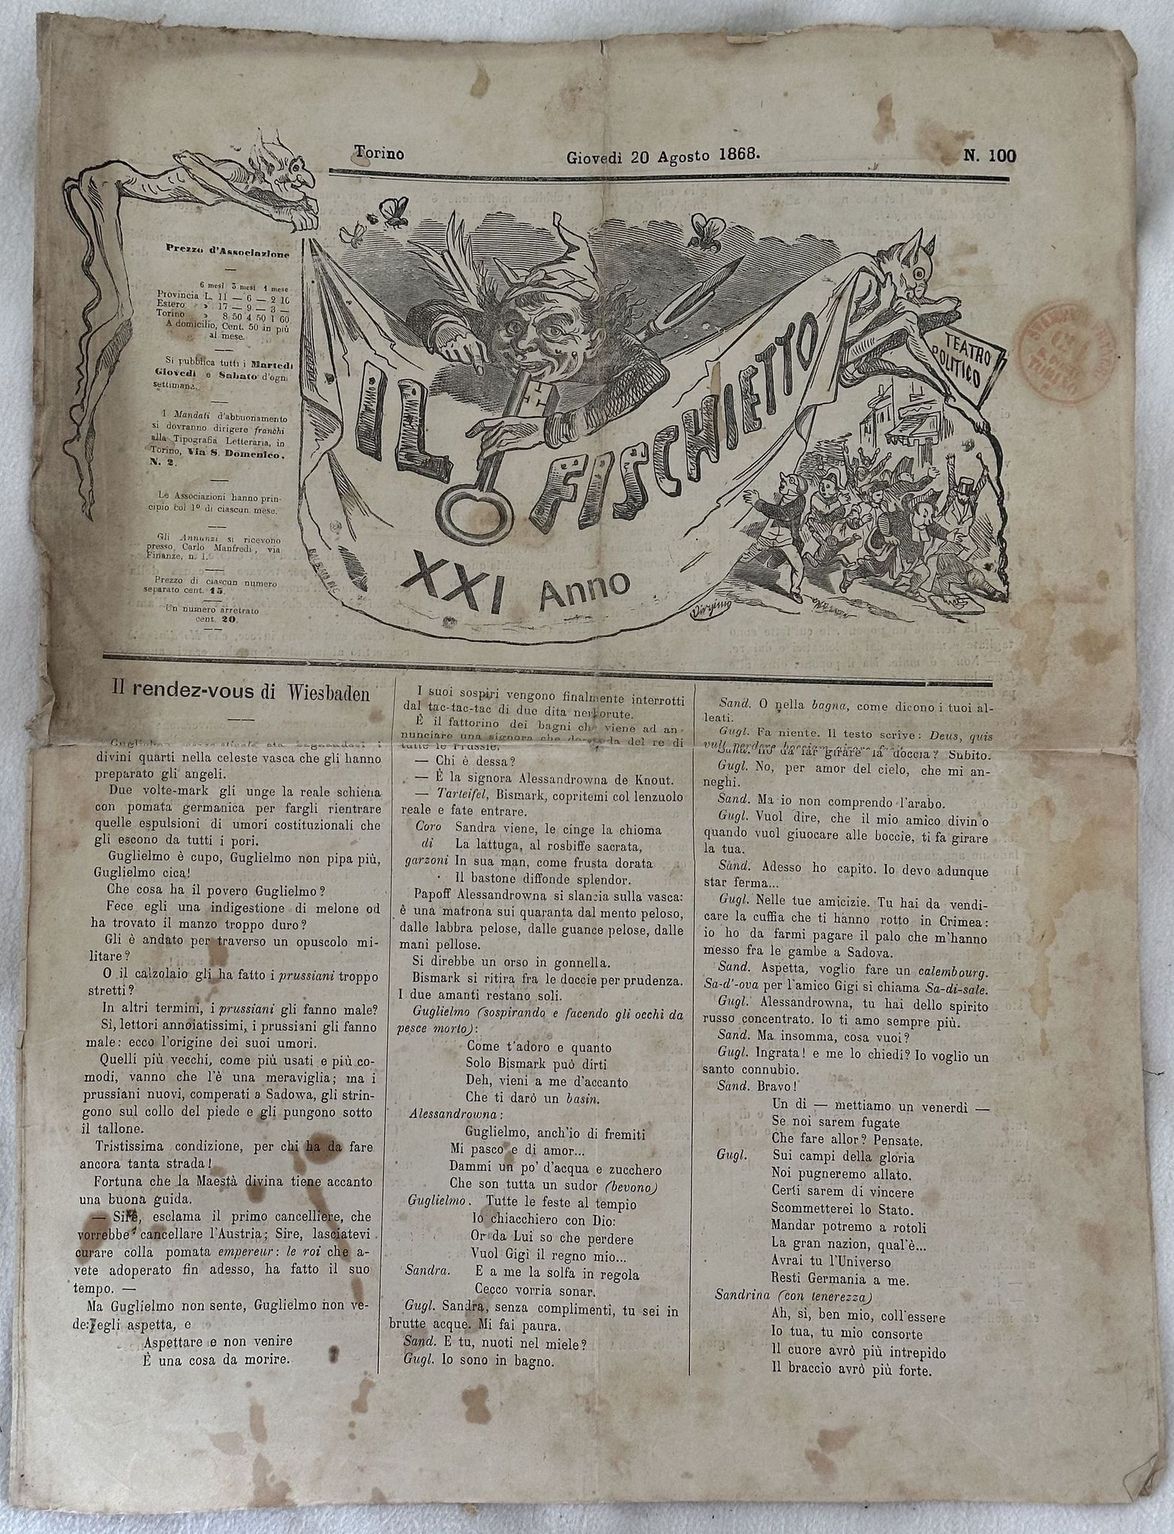 Torino
Giovedì 20 Agosto 1868.
N. 100
Prezzo d'Associazione
6 mesi 3 mesi 1 mese
Provincia L. 11 — 6 — 2 10
Estero » 17 — 9 — 3 —
Torino » 8 50 4 50 1 60
A domicilio, Cent. 50 in più
al mese.
Si pubblica tutti i Martedì
Giovedì e Sabato d'ogni
settimana.
I Mandati d'abbuonamento
si dovranno dirigere franchi
alla Tipografia Letteraria, in
Torino, Via S. Domenico,
N. 2.
Le Associazioni hanno prin-
cipio col 1° di ciascun mese.
Gli Annunzi si ricevono
presso Carlo Manfredi, via
Finanze, n. 1.
Prezzo di ciascun numero
separato cent. 15.
Un numero arretrato
cent. 20
IL FISCHIETTO
XXI Anno
TEATRO
POLITICO
Il rendez-vous di Wiesbaden
divini quarti nella celeste vasca che gli hanno
preparato gli angeli.
Due volte-mark gli unge la reale schiena
con pomata germanica per fargli rientrare
quelle espulsioni di umori costituzionali che
gli escono da tutti i pori.
Guglielmo è cupo, Guglielmo non pipa più,
Guglielmo cica!
Che cosa ha il povero Guglielmo?
Fece egli una indigestione di melone od
ha trovato il manzo troppo duro?
Gli è andato per traverso un opuscolo mi-
litare?
O il calzolaio gli ha fatto i prussiani troppo
stretti?
In altri termini, i prussiani gli fanno male?
Sì, lettori annoiatissimi, i prussiani gli fanno
male: ecco l'origine dei suoi umori.
Quelli più vecchi, come più usati e più co-
modi, vanno che l'è una meraviglia; ma i
prussiani nuovi, comperati a Sadowa, gli strin-
gono sul collo del piede e gli pungono sotto
il tallone.
Tristissima condizione, per chi ha da fare
ancora tanta strada!
Fortuna che la Maestà divina tiene accanto
una buona guida.
— Sire, esclama il primo cancelliere, che
vorrebbe cancellare l'Austria; Sire, lasciatevi
curare colla pomata empereur: le roi che a-
vete adoperato fin adesso, ha fatto il suo
tempo. —
Ma Guglielmo non sente, Guglielmo non ve-
de: egli aspetta, e
Aspettare e non venire
È una cosa da morire.
I suoi sospiri vengono finalmente interrotti
dal tac-tac-tac di due dita nerborute.
È il fattorino dei bagni che viene ad an-
nunciare una signora che del re di
tutte le Prussie.
— Chi è dessa?
— È la signora Alessandrowna de Knout.
— Tarteifel, Bismark, copritemi col lenzuolo
reale e fate entrare.
Coro Sandra viene, le cinge la chioma
di La lattuga, al rosbiffe sacrata,
garzoni In sua man, come frusta dorata
Il bastone diffonde splendor.
Papoff Alessandrowna si slancia sulla vasca:
è una matrona sui quaranta dal mento peloso,
dalle labbra pelose, dalle guance pelose, dalle
mani pellose.
Si direbbe un orso in gonnella.
Bismark si ritira fra le doccie per prudenza.
I due amanti restano soli.
Guglielmo (sospirando e facendo gli occhi da
pesce morto):
Come t'adoro e quanto
Solo Bismark può dirti
Deh, vieni a me d'accanto
Che ti darò un basin.
Alessandrowna:
Guglielmo, anch'io di fremiti
Mi pasco e di amor...
Dammi un po' d'acqua e zucchero
Che son tutta un sudor (bevono)
Guglielmo. Tutte le feste al tempio
Io chiacchiero con Dio:
Or da Lui so che perdere
Vuol Gigi il regno mio...
Sandra. E a me la solfa in regola
Cecco vorria sonar.
Gugl. Sandra, senza complimenti, tu sei in
brutte acque. Mi fai paura.
Sand. E tu, nuoti nel miele?
Gugl. Io sono in bagno.
Sand. O nella bagna, come dicono i tuoi al-
leati.
Gugl. Fa niente. Il testo scrive: Deus, quis
vult
Sand. Ho da far girare la doccia? Subito.
Gugl. No, per amor del cielo, che mi an-
neghi.
Sand. Ma io non comprendo l'arabo.
Gugl. Vuol dire, che il mio amico divino
quando vuol giuocare alle boccie, ti fa girare
la tua.
Sand. Adesso ho capito. Io devo adunque
star ferma...
Gugl. Nelle tue amicizie. Tu hai da vendi-
care la cuffia che ti hanno rotto in Crimea:
io ho da farmi pagare il palo che m'hanno
messo fra le gambe a Sadova.
Sand. Aspetta, voglio fare un calembourg.
Sa-d'-ova per l'amico Gigi si chiama Sa-di-sale.
Gugl. Alessandrowna, tu hai dello spirito
russo concentrato. Io ti amo sempre più.
Sand. Ma insomma, cosa vuoi?
Gugl. Ingrata! e me lo chiedi? Io voglio un
santo connubio.
Sand. Bravo!
Un dì — mettiamo un venerdì —
Se noi sarem fugate
Che fare allor? Pensate.
Gugl. Sui campi della gloria
Noi pugneremo allato.
Certi sarem di vincere
Scommetterei lo Stato.
Mandar potremo a rotoli
La gran nazion, qual'è...
Avrai tu l'Universo
Resti Germania a me.
Sandrina (con tenerezza)
Ah, sì, ben mio, coll'essere
Io tua, tu mio consorte
Il cuore avrò più intrepido
Il braccio avrò più forte.